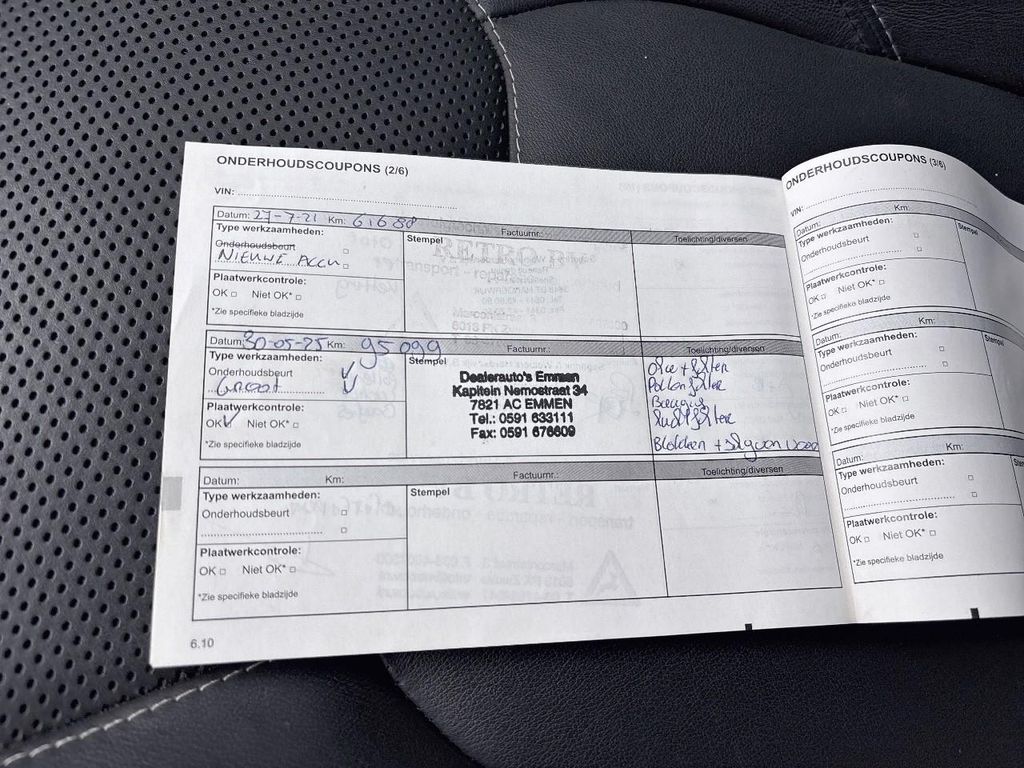 ONDERHOUDSCOUPONS (2/6)
VIN:
Datum: 27-7-21 Km: 61688
Type werkzaamheden:
Stempel
Factuurnr.:
Toelichting/diversen
Onderhoudsbeurt
NIEUWE ACCU
Plaatwerkcontrole:
OK Niet OK*
*Zie specifieke bladzijde
Datum: 30-05-25 Km: 95099
Type werkzaamheden:
Stempel
Factuurnr.:
Toelichting/diversen
Onderhoudsbeurt
Groot
Plaatwerkcontrole:
OK Niet OK*
*Zie specifieke bladzijde
Dealerauto's Emmen
Kapitein Nemostraat 34
7821 AC EMMEN
Tel.: 0591 633111
Fax: 0591 676609
Olie + filter
Pollen filter
Bougies
Luchtfilter
Datum: Km:
Type werkzaamheden:
Stempel
Factuurnr.:
Toelichting/diversen
Onderhoudsbeurt
Plaatwerkcontrole:
OK Niet OK*
*Zie specifieke bladzijde
6.10
ONDERHOUDSCOUPONS (3/6)
VIN:
Datum: Km:
Type werkzaamheden:
Stempel
Onderhoudsbeurt
Plaatwerkcontrole:
OK Niet OK*
*Zie specifieke bladzijde
Datum: Km:
Type werkzaamheden:
Onderhoudsbeurt
Plaatwerkcontrole:
OK Niet OK*
*Zie specifieke bladzijde
Datum: Km:
Type werkzaamheden:
Onderhoudsbeurt
Plaatwerkcontrole:
OK Niet OK*
*Zie specifieke bladzijde